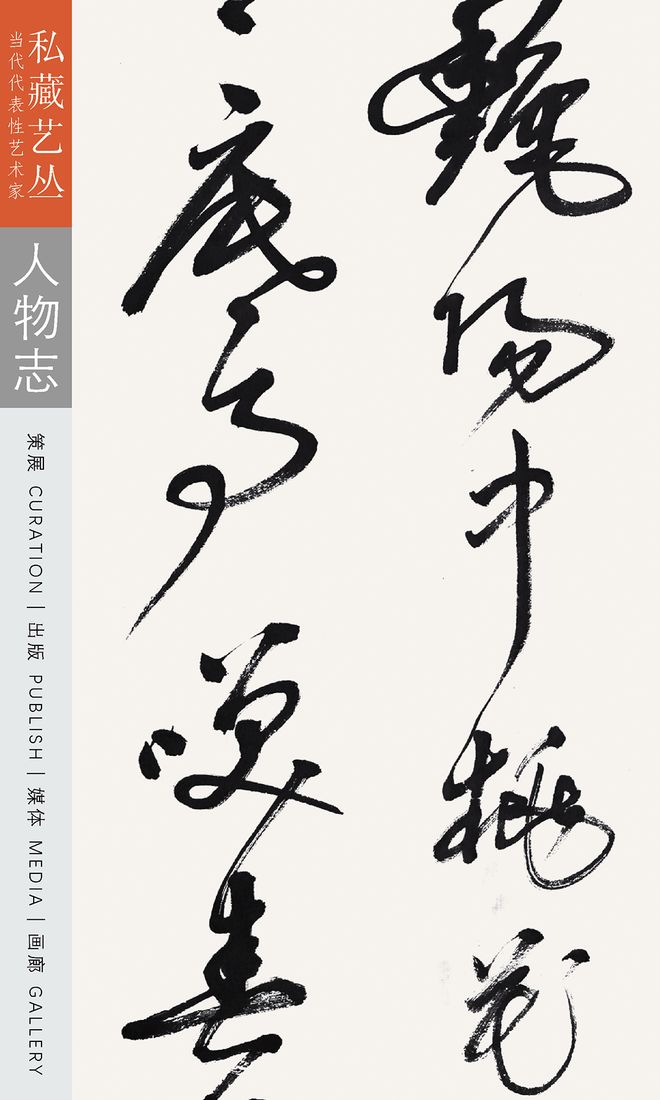 私藏艺丛
当代代表性艺术家
人物志
策展 CURATION | 出版 PUBLISH | 媒体 MEDIA | 画廊 GALLERY
陽中桃花
底事嘆春